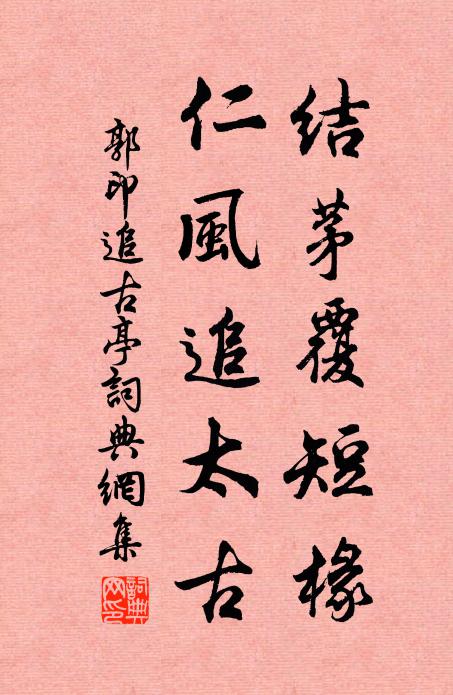 結茅覆短椽
仁風追太古
郭印追古亭詞典網集
詞典網印